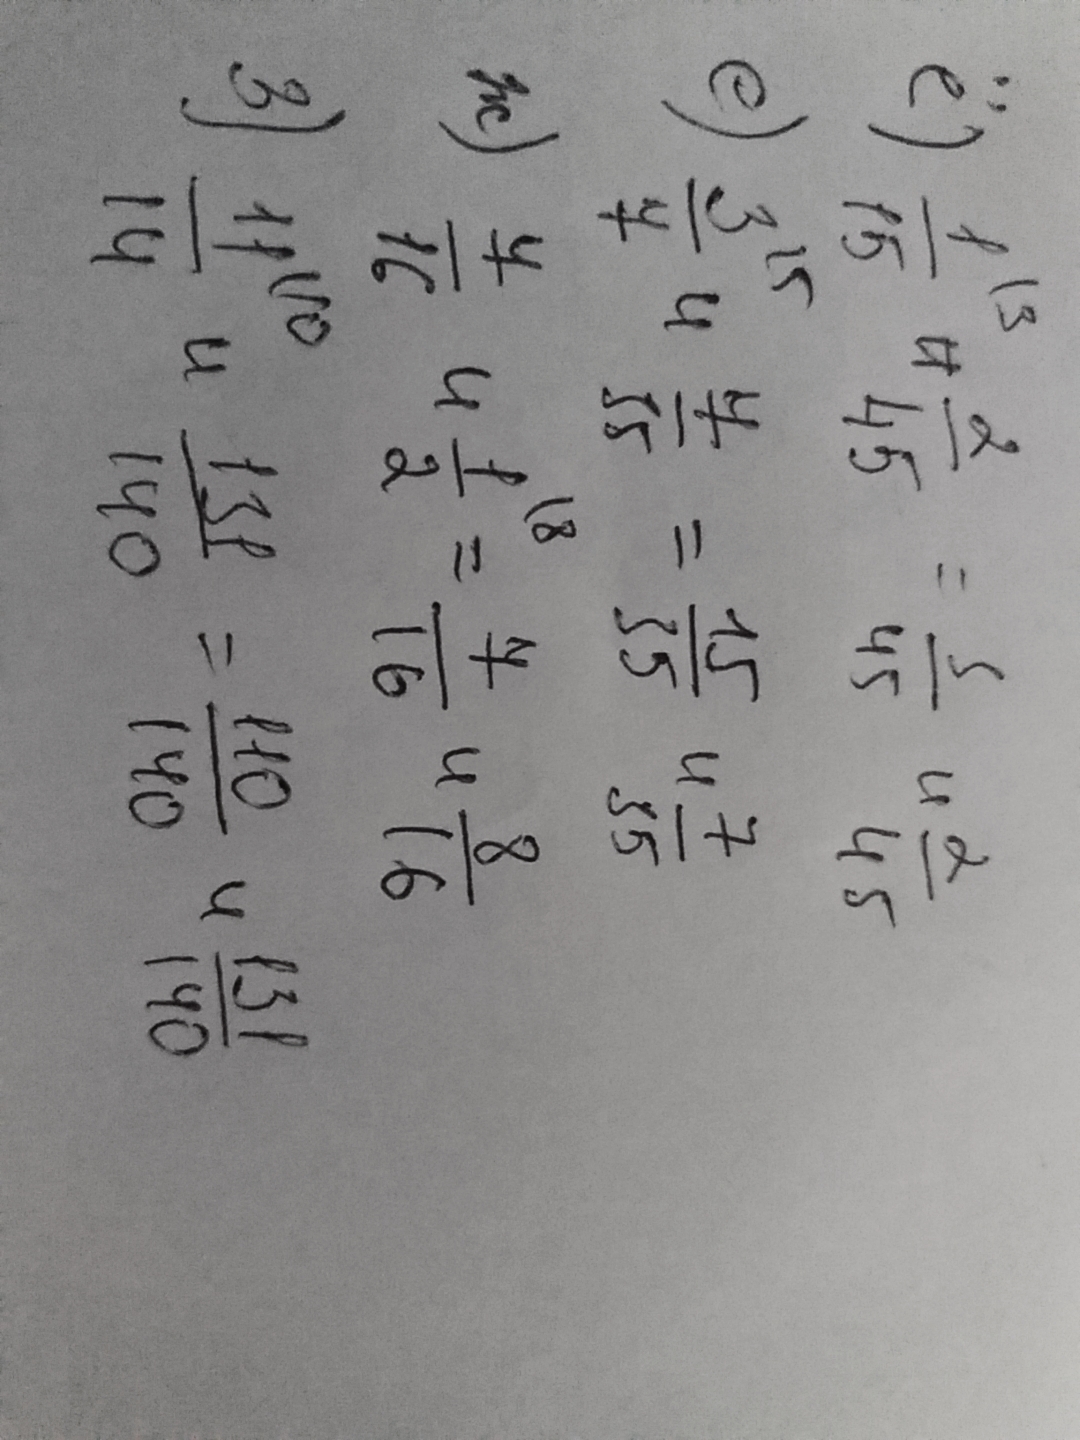 ё) 1/15 |3 и 2/45 = 3/45 и 2/45
е) 3/7 |5 и 7/35 = 15/35 и 7/35
ж) 7/16 и 1/2 |8 = 7/16 и 8/16
з) 11/14 |10 и 131/140 = 110/140 и 131/140